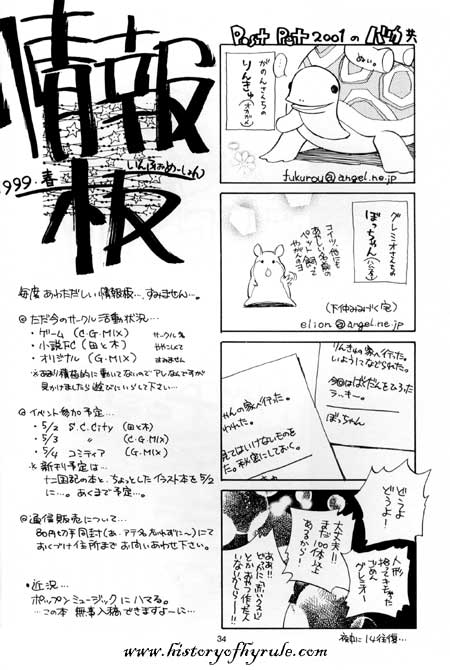 情報板
いんふぉめーしょん
1999.春
毎度あわただしい情報板…すみません…。
@ただ今のサークル活動状況…
・ゲーム (C.G.MIX)
・小説FC (田と木)
・オリジナル (C.G.MIX)
サークル名
ややこしくて
すみません
※あまり積極的に動いてないのでアレなんですが
見かけましたら遊びにいらして下さい…
@イベント参加予定…
・5/2 S.C.City (田と木)
・5/3 〃 (C.G.MIX)
・5/4 コミティア (C.G.MIX)
※新刊予定は…
十二国記の本と、ちょっとしたイラスト本を5/2
に…。あくまで予定…。
@通信販売について…
80円切手同封(あ、アテ名も忘れずに〜)にて
おくづけ住所までお問いあわせ下さい。
・近況…
ポップンミュージックにハマる。
…この本 無事入稿できますよーに…
Post Pet 2001の バカ共
ぬぃ。
がのんさんちの
りんきゅ(オカガメ)
fukurou@angel.ne.jp
グレミオさんちの
ぼっちゃん(ハムネ)
コイツ、他にも
あやしい名前の
ペット飼って
やがんのヨ
elion@angel.ne.jp
りんきゅの家へ行った。
いようになでられた。
今回はばくだんをひろった
ラッキー。
ぼっちゃん
ゃんの家へ行った。
われた。
えてはいけないものを
た。秘密にしておく。
どうよ
どうよ!
人形
捨てきちゃった
ごめん
グレミオー
大丈夫!!
まだ100体以上
あるから!
あぁ!!
とかおやつ作ったん
いないからー!
夜中に14往復…
34
www.historyofhyrule.com